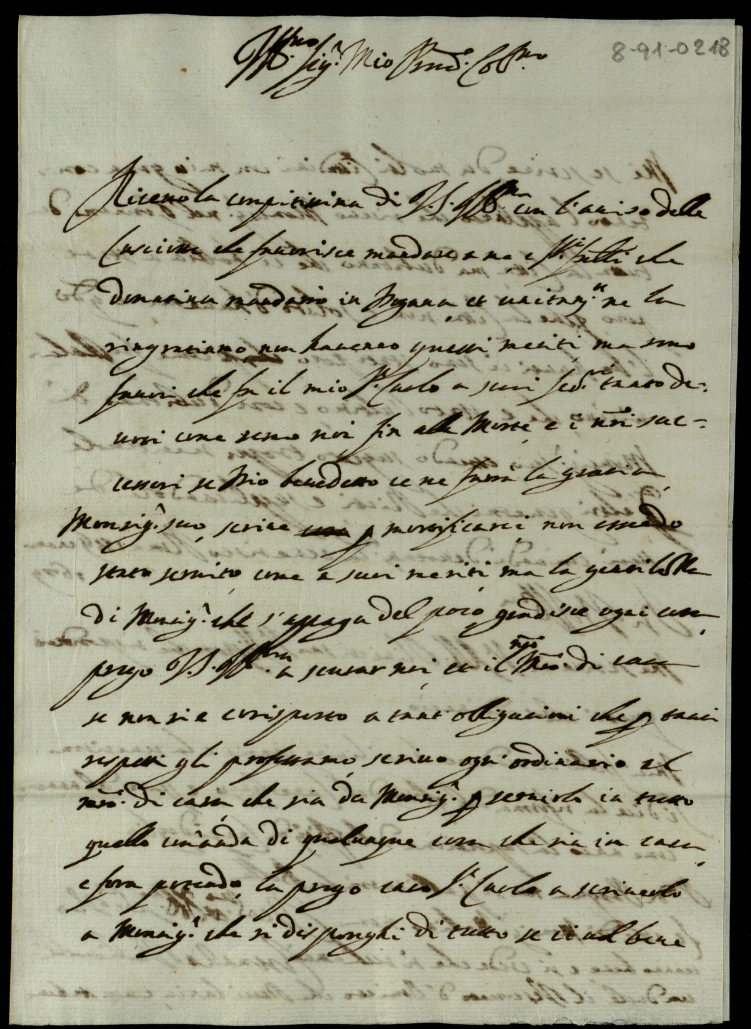 8-91-0218
Ill.mo Sig.r Mio Pad.e Col.mo
Ricevo la compitissima di V.S. Ill.ma con l'aviso delle
che favorisce mandare a me e fr.lli che
domatina mandarò in Dogana et unitam.te ne la
ringratiamo non havendo questi meriti ma sono
favori che fa il mio S.r Carlo a suoi Ser.ri tanto de-
voti come semo noi fin alla Morte e i n̄ri suc-
cessori se Dio benedetto ce ne farà la gratia
Monsig.r suo scrive p mortificarci non essendo
stato servito come a suoi meriti ma la gentilezza
di Monsig.r che s'appaga del poco gradisce ogni cosa
prego V.S. Ill.ma a scusar noi et il n̄ro M̄ro di casa
se non si è corisposto a tant obligationi che p tanti
rispetti gli professamo, scrivo ogni ordinario al
m̄ro di casa che sia da Monsig.r p servirlo in tutto
quello comanda di qualunque cosa che sia in casa
e fora potendo, la prego caro S.r Carlo a scriverlo
a Monsig.r che si disponghi di tutto se ci vol bene